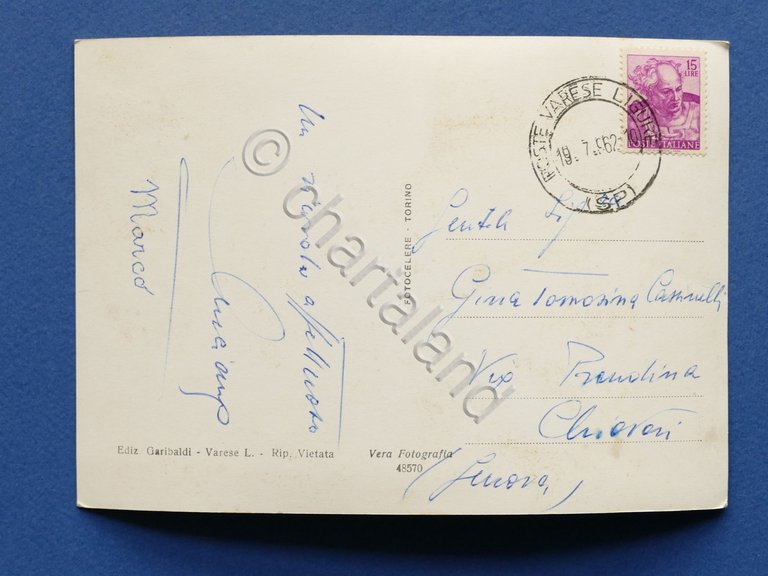 Un ricordo affettuoso
Marco
FOTOCELERE - TORINO
15
LIRE
POSTE ITALIANE
POSTE VARESE LIGURE
19. 7. 962
(SP)
Gentile
Gina Tomasina
Via
Chiavari
(Genova)
Ediz. Garibaldi - Varese L. - Rip. Vietata
Vera Fotografia
48570
© chartaland